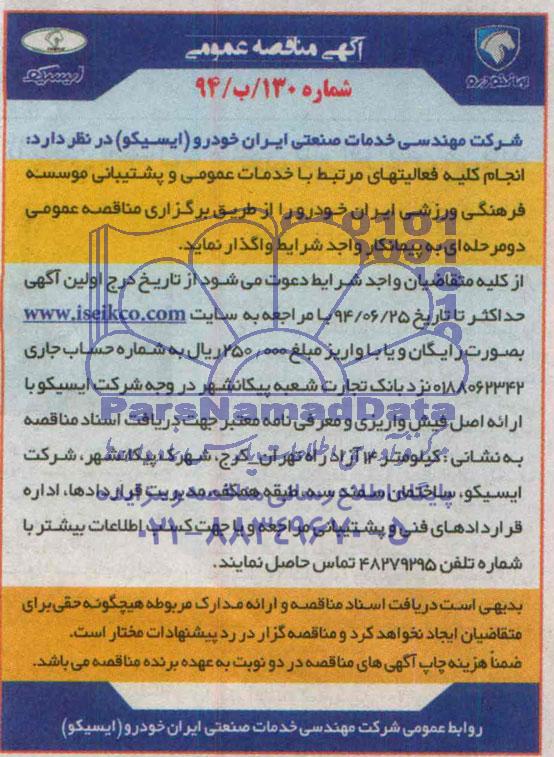 آگهی مناقصه عمومی
ایسیکو
ایران‌خودرو
شماره ۱۳۰/ب/۹۴
شرکت مهندسی خدمات صنعتی ایران خودرو (ایسیکو) در نظر دارد:
انجام کلیه فعالیتهای مرتبط با خدمات عمومی و پشتیبانی موسسه
فرهنگی ورزشی ایران خودرو را از طریق برگزاری مناقصه عمومی
دومرحله‌ای به پیمانکار واجد شرایط واگذار نماید.
از کلیه متقاضیان واجد شرایط دعوت می‌شود از تاریخ درج اولین آگهی
حداکثر تا تاریخ ۹۴/۰۶/۲۵ با مراجعه به سایت www.iseikco.com
بصورت رایگان و یا با واریز مبلغ ۲۵۰٫۰۰۰ ریال به شماره حساب جاری
۰۱۸۸۰۶۲۳۴۲ نزد بانک تجارت شعبه پیکانشهر در وجه شرکت ایسیکو با
ارائه اصل فیش واریزی و معرفی نامه معتبر جهت دریافت اسناد مناقصه
به نشانی: کیلومتر ۱۴ آزاد راه تهران_کرج، شهرک پیکانشهر، شرکت
ایسیکو، ساختمان سمند سه، طبقه همکف، مدیریت قراردادها، اداره
قراردادهای فنی و پشتیبانی مراجعه و یا جهت کسب اطلاعات بیشتر با
شماره تلفن ۴۸۲۷۹۲۹۵ تماس حاصل نمایند.
بدیهی است دریافت اسناد مناقصه و ارائه مدارک مربوطه هیچگونه حقی برای
متقاضیان ایجاد نخواهد کرد و مناقصه گزار در رد پیشنهادات مختار است.
ضمناً هزینه چاپ آگهی های مناقصه در دو نوبت به عهده برنده مناقصه می باشد.
روابط عمومی شرکت مهندسی خدمات صنعتی ایران خودرو (ایسیکو)
ParsNamadData
۰۲۱-۸۸۳۴۹۶۷۰-۵